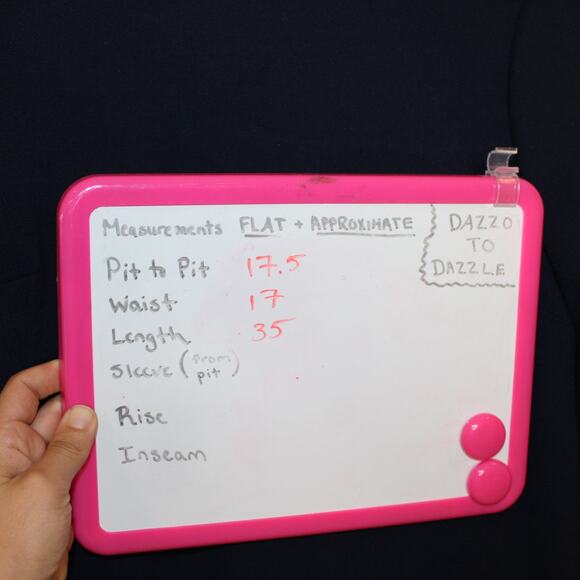 Measurements FLAT + APPROXIMATE
DAZZO
TO
DAZZLE
Pit to Pit 17.5
Waist 17
Length 35
Sleeve (from pit)
Rise
Inseam